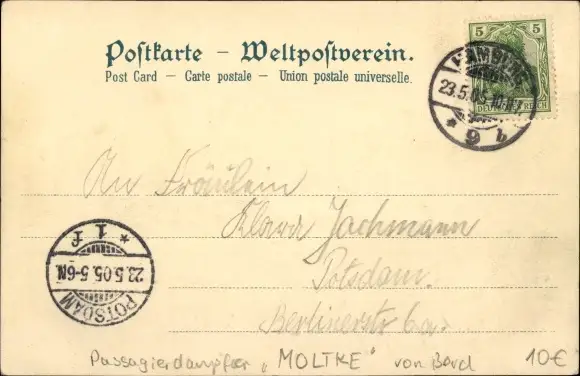 Postkarte – Weltpostverein.
Post Card – Carte postale – Union postale universelle.
5 5
DEUTSCHES REICH
HAMBURG
23.5.05.
* 9 b
An Fräulein
Klara Jachmann
Potsdam.
Berlinerstr 6a.
* 1 f
23.5.05. 5-6N.
POTSDAM
Passagierdampfer „MOLTKE" von Bord
10€